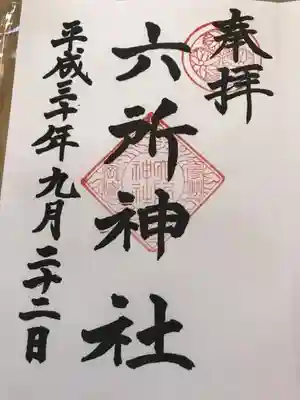 奉拝
六所神社
平成三十年九月二十二日